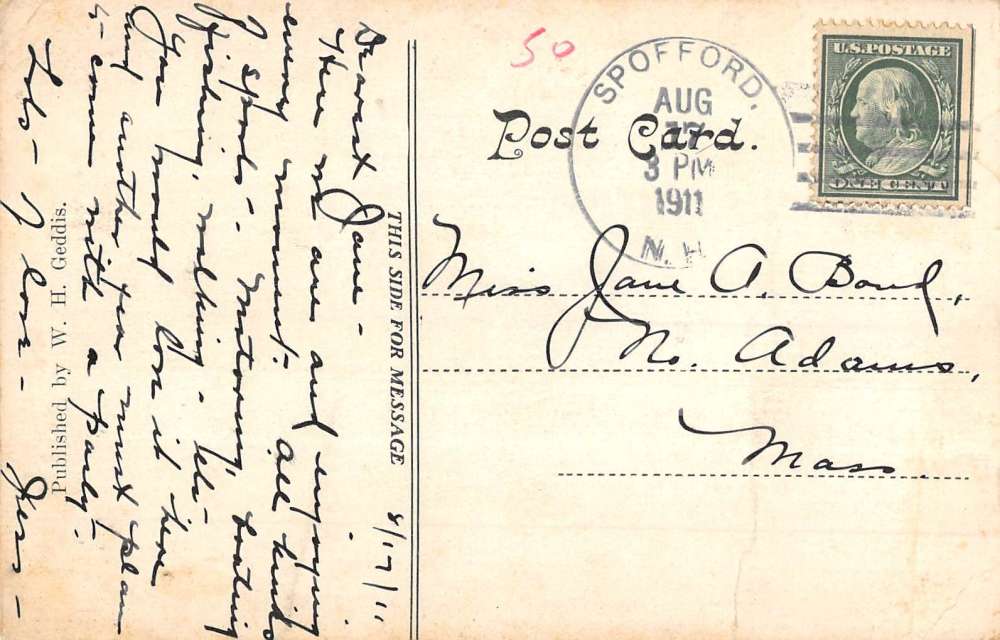 THIS SIDE FOR MESSAGE
8/17/11
Dearest Jane -
Here we are and enjoying
every moment. All kinds
of sports - Motoring, boating
fishing, walking - etc -
You would love it here
Any another year must plan
to come with a party.
Lots - of love -
Published by W. H. Geddis.
50
Post Card.
SPOFFORD.
AUG
17
3 PM
1911
N.H.
U.S.POSTAGE
ONE CENT
Miss Jane A. Bond,
No. Adams,
Mass.